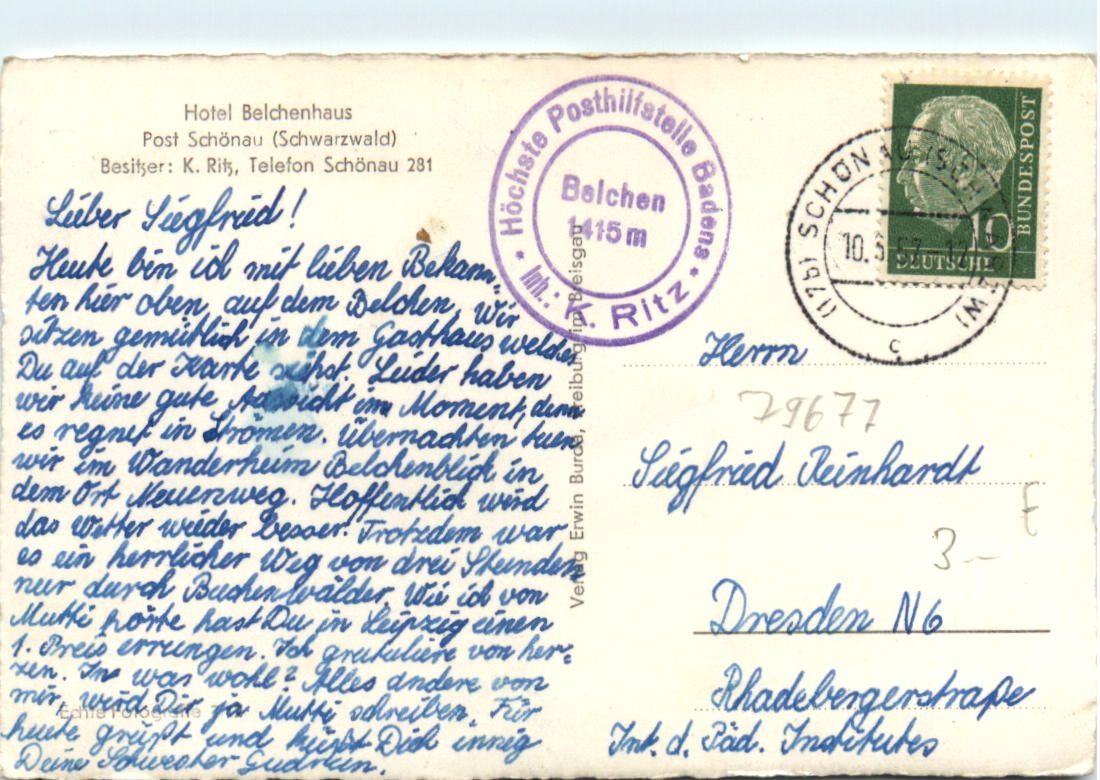 Hotel Belchenhaus
Post Schönau (Schwarzwald)
Besitzer: K. Ritz, Telefon Schönau 281
Lieber Siegfried!
Heute bin ich mit lieben Bekann-
ten hier oben auf dem Belchen. Wir
sitzen gemütlich in dem Gasthaus welches
Du auf der Karte siehst. Leider haben
wir keine gute Aussicht im Moment, denn
es regnet in Strömen. Übernachten tuen
wir im Wanderheim Belchenblick in
dem Ort Neuenweg. Hoffentlich wird
das Wetter wieder besser. Trotzdem war
es ein herrlicher Weg von drei Stunden
nur durch Buchenwälder. Wie ich von
Mutti hörte hast Du in Leipzig einen
1. Preis errungen. Ich gratuliere von her-
zen. In was wohl? Alles andere von
mir, wird Dir ja Mutti schreiben. Für
heute grüßt und küßt Dich innig
Deine Schwester Gudrun.
Echte Fotografie
Verlag Erwin Burda, Freiburg im Breisgau
Höchste Posthilfstelle Badens
Belchen
1415 m
Inh.: K. Ritz
(17b) SCHÖNAU
10. 57
c
BUNDESPOST
10
DEUTSCHE
Herrn
79677
Siegfried Reinhardt
E
3-
Dresden N6
Rhadebergerstraße
Int. d. Päd. Institutes